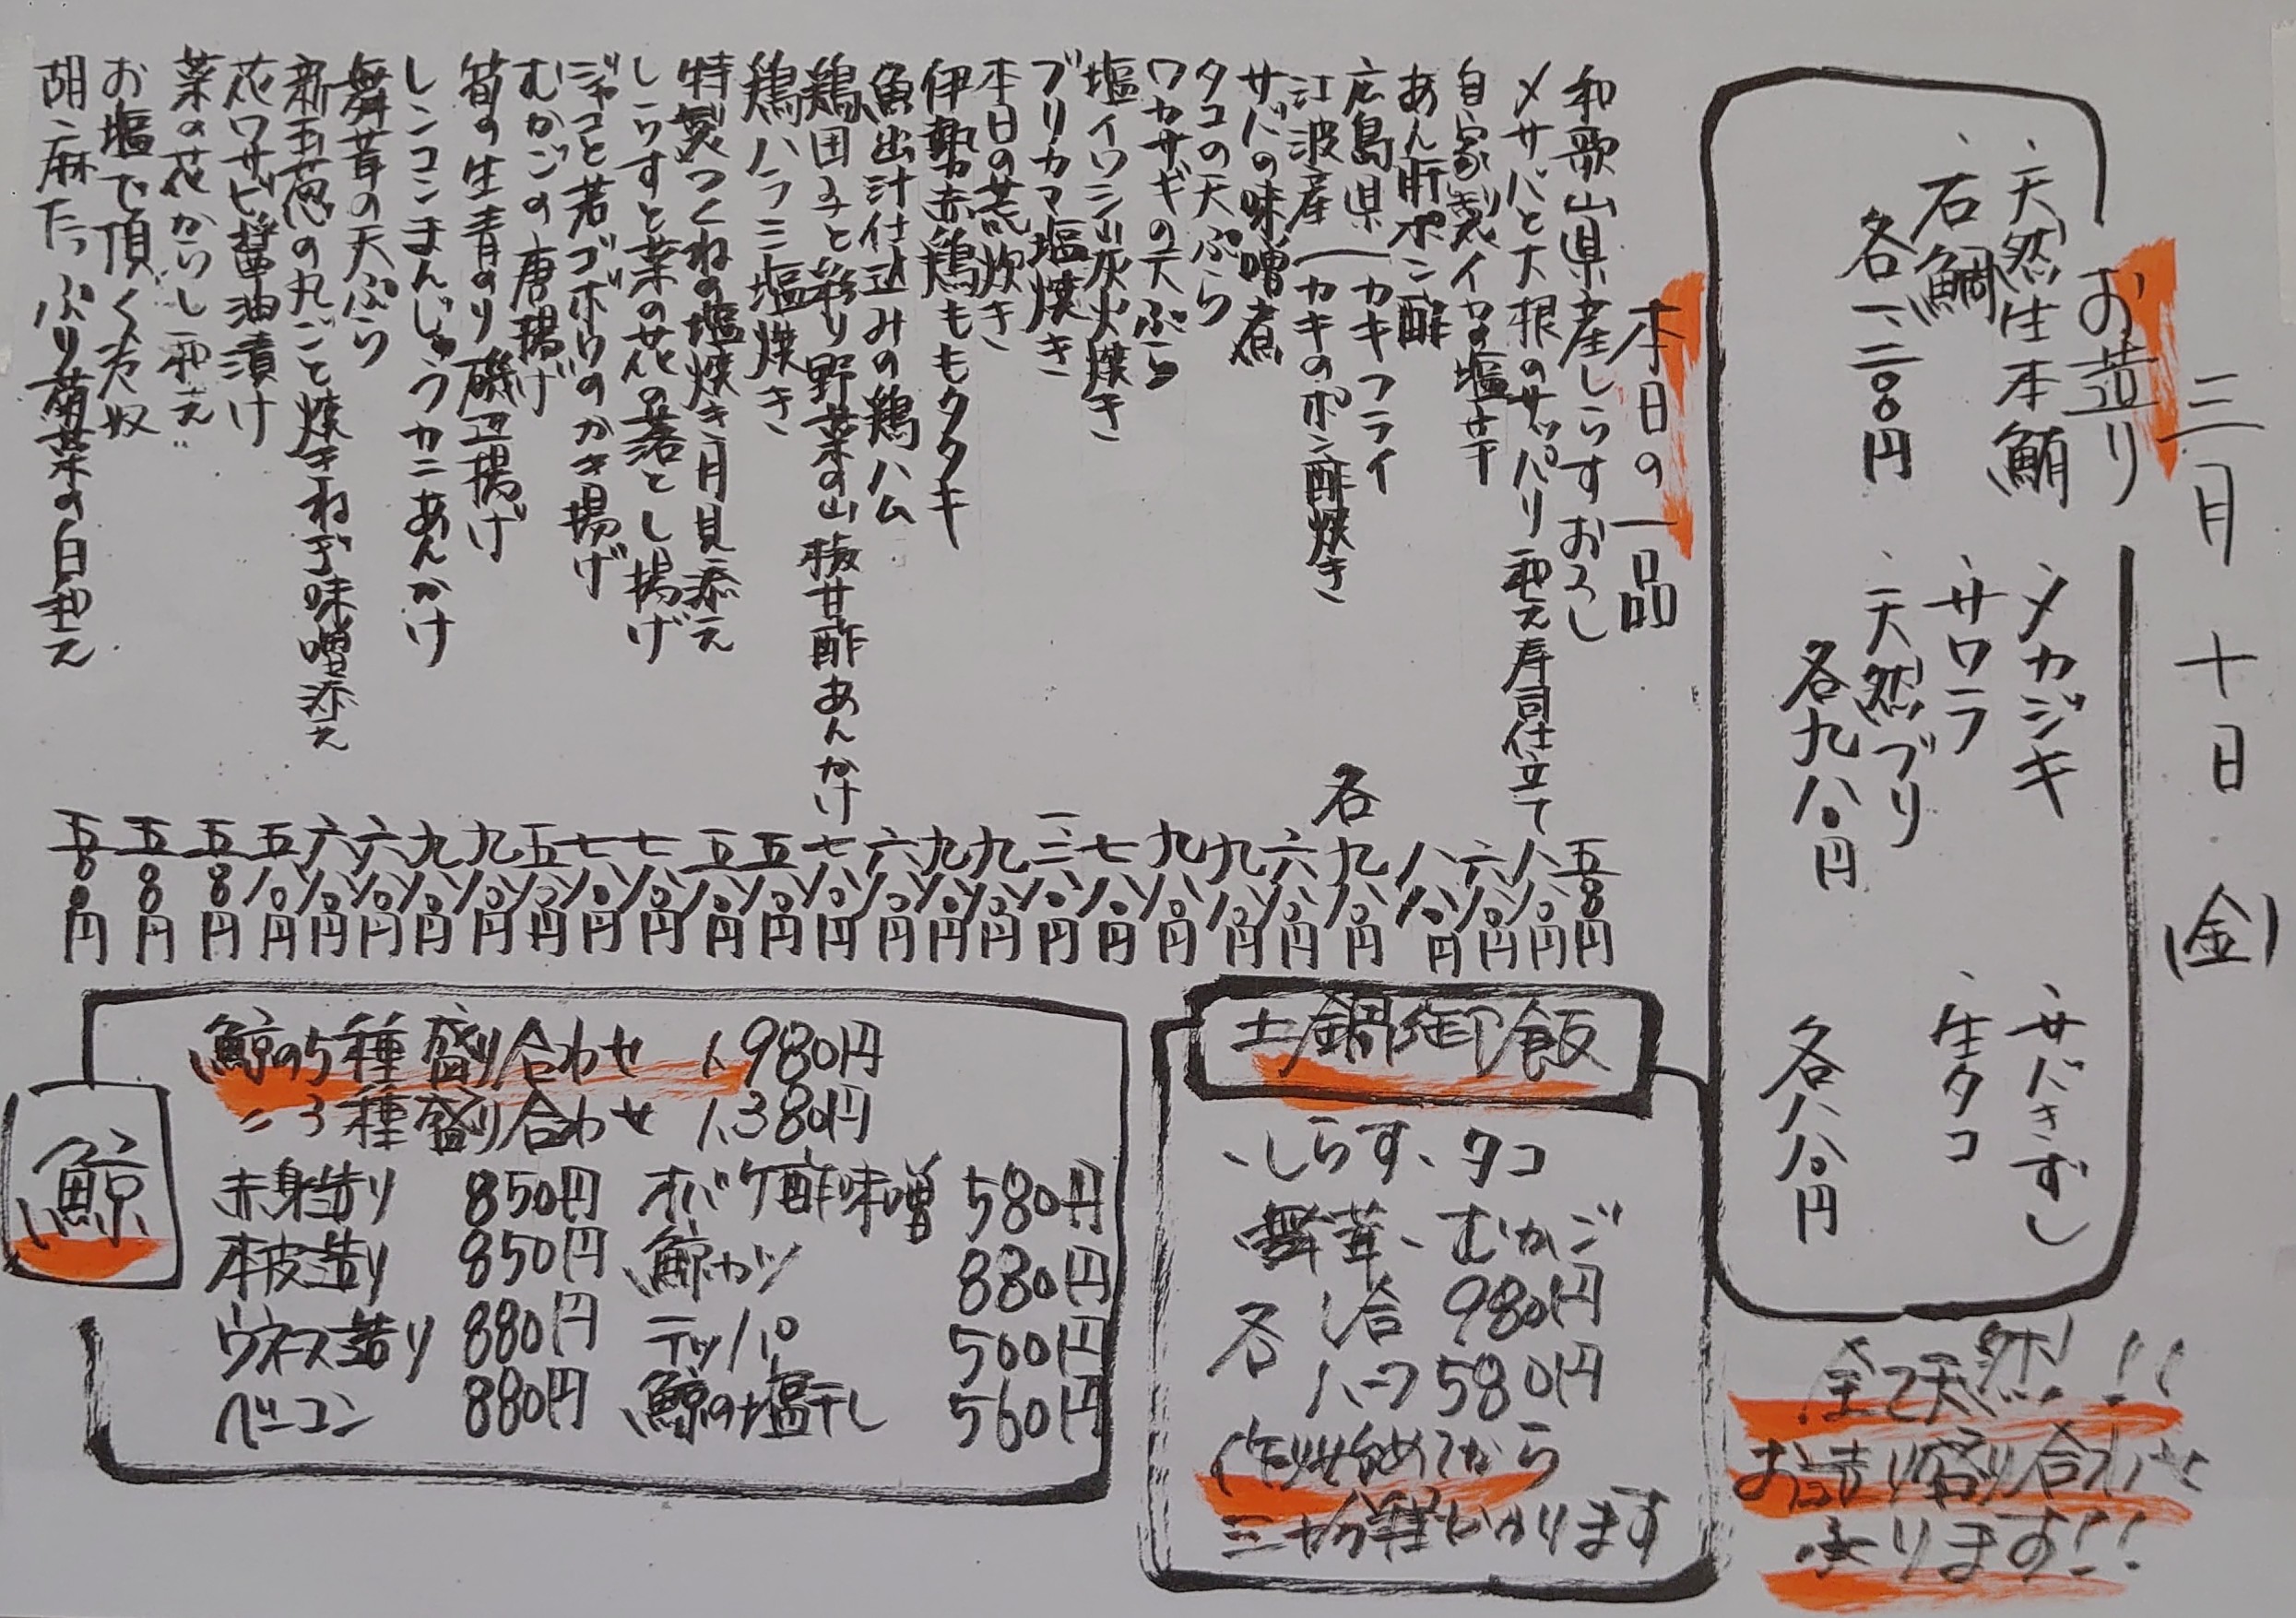 三月十日(金)
お造り
、天然生本鮪
、石鯛
各一、二〇〇円
、メカジキ
、サワラ
、天然ブリ
各九八〇円
、サバきずし
、生タコ
各八八〇円
全て天然!!!
お造り盛り合わせ
承ります!!
本日の一品
和歌山県産しらすおろし 五〇〇円
〆サバと大根のサッパリ和え寿司仕立て 八八〇円
自家製イカの塩辛 六八〇円
あん肝ポン酢 八八〇円
広島県 カキフライ
江波産 カキのポン酢焼き
各九八〇円
サバの味噌煮 六八〇円
タコの天ぷら 九八〇円
ワカサギの天ぷら 九八〇円
塩イワシ炭火焼き 七八〇円
ブリカマ塩焼き
本日の荒炊き 九八〇円
伊勢赤鶏ももタタキ 九八〇円
魚出汁仕込みの鶏ハム 六八〇円
鶏団子と彩り野菜の山椒甘酢あんかけ 七八〇円
鶏ハラミ塩焼き 五八〇円
特製つくねの塩焼き月見添え 五八〇円
しらすと菜の花の落とし揚げ 七八〇円
ジャコと若ゴボウのかき揚げ 七八〇円
むかごの唐揚げ 五八〇円
筍の生青のり磯辺揚げ 九八〇円
レンコンまんじゅうカニあんかけ 九八〇円
舞茸の天ぷら 六八〇円
新玉葱の丸ごと焼きねぎ味噌添え 六八〇円
花ワサビ醤油漬け 五八〇円
菜の花からし和え 五〇〇円
お塩で頂く冷奴 五〇〇円
胡麻たっぷり菊菜の白和え 五〇〇円
土鍋御飯
、しらす、タコ
舞茸、むかご
各 1合 980円
ハーフ 580円
作り始めてから
三十分程かかります
鯨
鯨の5種盛り合わせ 1,980円
〃 3種盛り合わせ 1,380円
赤身造り 850円 オバケ酢味噌 580円
本皮造り 850円 鯨カツ 880円
ウネス造り 880円 テッパ 500円
ベーコン 880円 鯨の塩干し 560円